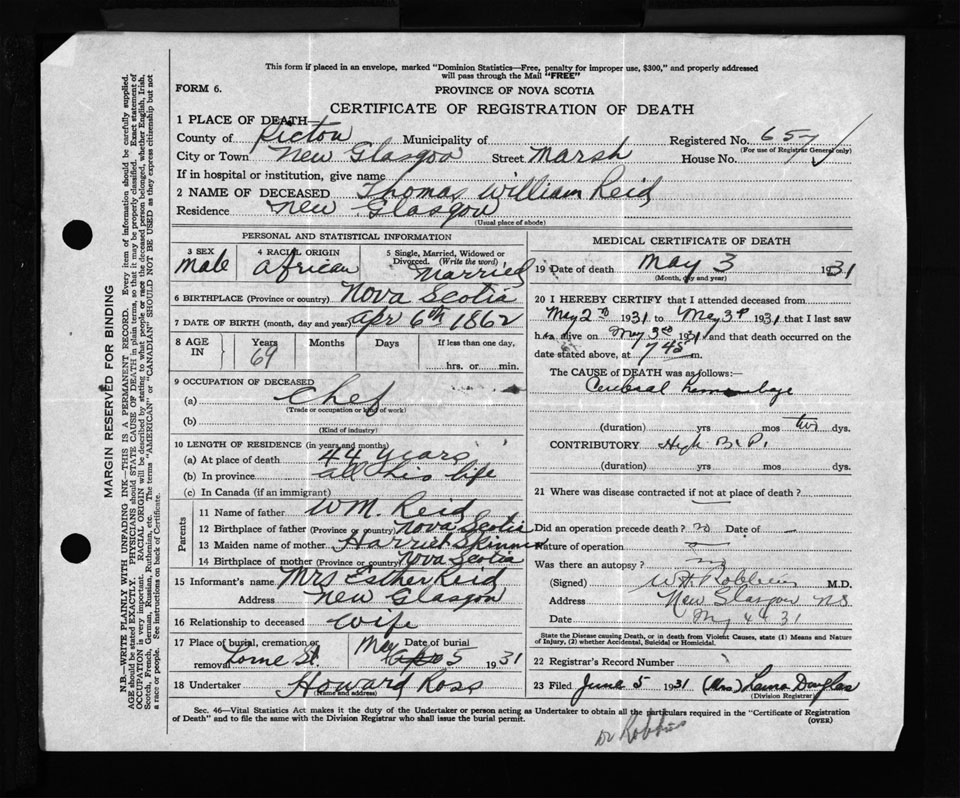 This form if placed in an envelope, marked "Dominion Statistics—Free, penalty for improper use, $300," and properly addressed
will pass through the Mail "FREE"
FORM 6.
PROVINCE OF NOVA SCOTIA
CERTIFICATE OF REGISTRATION OF DEATH
1 PLACE OF DEATH
County of Pictou Municipality of Registered No. 657
(For use of Registrar General only)
City or Town New Glasgow Street Marsh House No.
If in hospital or institution, give name
2 NAME OF DECEASED Thomas William Reid
Residence New Glasgow
(Usual place of abode)
PERSONAL AND STATISTICAL INFORMATION
3 SEX Male
4 RACIAL ORIGIN African
5 Single, Married, Widowed or Divorced. (Write the word) Married
6 BIRTHPLACE (Province or country) Nova Scotia
7 DATE OF BIRTH (month, day and year) Apr 6th 1862
8 AGE IN Years Months Days If less than one day,
69 hrs. or min.
9 OCCUPATION OF DECEASED
(a) Chef
(Trade or occupation or kind of work)
(b)
(Kind of industry)
10 LENGTH OF RESIDENCE (in years and months)
(a) At place of death 44 years
(b) In province all his life
(c) In Canada (if an immigrant)
Parents
11 Name of father Wm. Reid
12 Birthplace of father (Province or country) Nova Scotia
13 Maiden name of mother Harriet Skinner
14 Birthplace of mother (Province or country) Nova Scotia
15 Informant's name Mrs Esther Reid
Address New Glasgow
16 Relationship to deceased wife
17 Place of burial, cremation or removal Lorne St. Date of burial May 5 1931
18 Undertaker Howard Ross
(Name and address)
MEDICAL CERTIFICATE OF DEATH
19 Date of death May 3 1931
(Month, day and year)
20 I HEREBY CERTIFY that I attended deceased from
May 2nd 1931 to May 3rd 1931 that I last saw
h alive on May 3rd 1931 and that death occurred on the
date stated above, at 7 45 m.
The CAUSE of DEATH was as follows:—
Cerebral hemorrhage
(duration) yrs mos two dys.
CONTRIBUTORY High B.P.
(duration) yrs mos dys.
21 Where was disease contracted if not at place of death?
Did an operation precede death? no Date of —
Nature of operation —
Was there an autopsy? no
(Signed) W.H. Robbins M.D.
Address New Glasgow NS
Date May 4 31
State the Disease causing Death, or in death from Violent Causes, state (1) Means and Nature
of Injury, (2) whether Accidental, Suicidal or Homicidal.
22 Registrar's Record Number
23 Filed June 5 1931 (Mrs) Lana Douglas
(Division Registrar)
Sec. 46—Vital Statistics Act makes it the duty of the Undertaker or person acting as Undertaker to obtain all the particulars required in the "Certificate of Registration
of Death" and to file the same with the Division Registrar who shall issue the burial permit. (OVER)
Dr Robbins
MARGIN RESERVED FOR BINDING
N.B.—WRITE PLAINLY WITH UNFADING INK—THIS IS A PERMANENT RECORD. Every item of information should be carefully supplied.
AGE should be stated EXACTLY. PHYSICIANS should STATE CAUSE OF DEATH in plain terms, so that it may be properly classified. Exact statement of
OCCUPATION is very important. RACIAL ORIGIN will be described by stating to what people or race the deceased person belonged, whether English, Irish,
Scotch, French, German, Russian, Ruthenian, etc. The terms "AMERICAN" or "CANADIAN" SHOULD NOT BE USED as they express citizenship but not
a race or people. See instructions on back of Certificate.